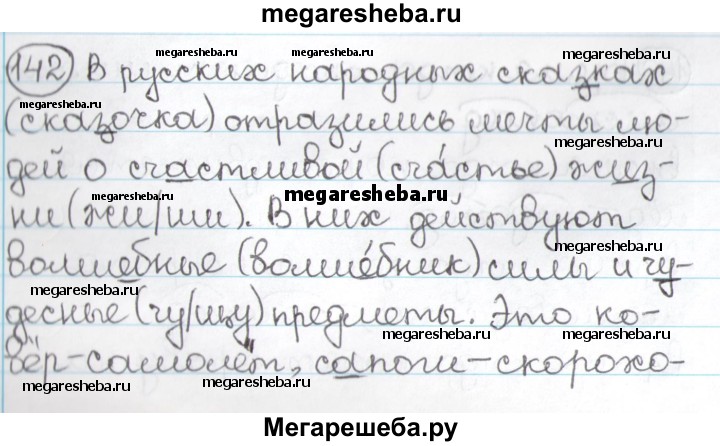 megaresheba.ru
142 В русских народных сказках
(сказочка) отразились мечты лю-
дей о счастливой (счáстье) жиз-
ни (жи/ши). В них действуют
волшебные (волшéбник) силы и чу-
десные (чу/щу) предметы. Это ко-
вёр-самолёт, сапоги-скорохо-
megaresheba.ru
megaresheba.ru
megaresheba.ru
megaresheba.ru
megaresheba.ru
megaresheba.ru
megaresheba.ru
megaresheba.ru
megaresheba.ru
megaresheba.ru
megaresheba.ru
megaresheba.ru
Мегарешеба.ру